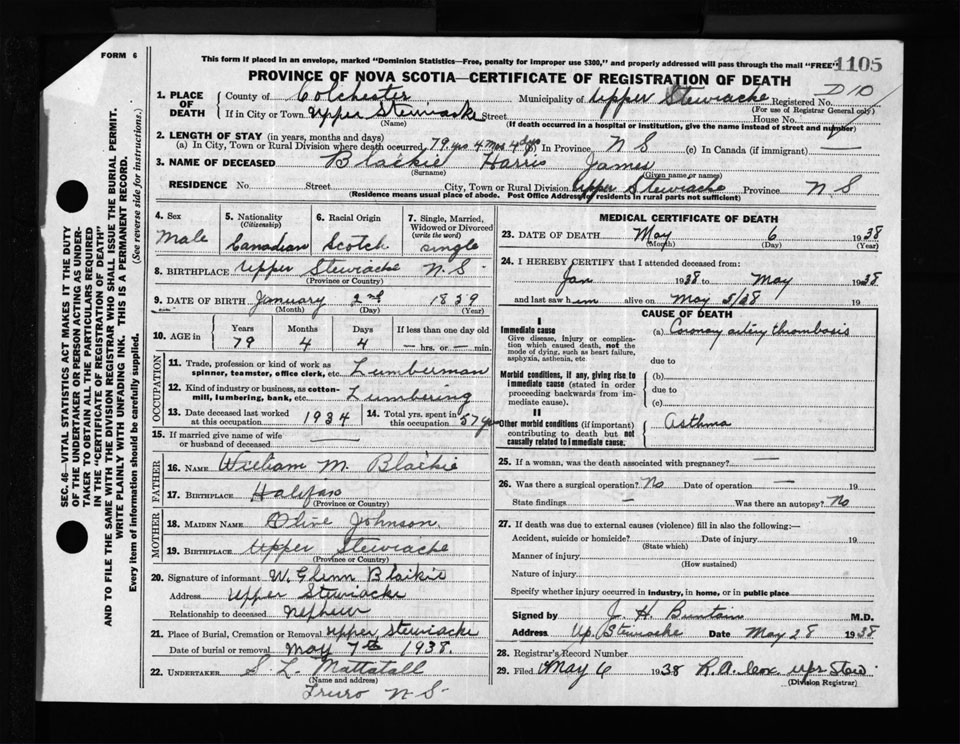 FORM 6
This form if placed in an envelope, marked "Dominion Statistics—Free, penalty for improper use $300," and properly addressed will pass through the mail "FREE"
1105
PROVINCE OF NOVA SCOTIA—CERTIFICATE OF REGISTRATION OF DEATH
D10
1. PLACE OF DEATH County of Colchester Municipality of Upper Stewiacke Registered No.
(For use of Registrar General only)
If in City or Town Upper Stewiacke Street House No.
(Name) (If death occurred in a hospital or institution, give the name instead of street and number)
2. LENGTH OF STAY (in years, months and days)
(a) In City, Town or Rural Division where death occurred 79 yrs 4 mos 4 dys (b) In Province N S (c) In Canada (if immigrant) —
3. NAME OF DECEASED Blaikie Harris James
(Surname) (Given name or name)
RESIDENCE No. Street City, Town or Rural Division Upper Stewiacke Province N S
(Residence means usual place of abode. Post Office Address of residents in rural parts not sufficient)
4. Sex
Male
5. Nationality (Citizenship)
Canadian
6. Racial Origin
Scotch
7. Single, Married, Widowed or Divorced (write the word)
single
8. BIRTHPLACE Upper Stewiacke N.S.
(Province or County)
9. DATE OF BIRTH January 2nd 1839
(Month) (Day) (Year)
10. AGE in Years Months Days If less than one day old
79 4 4 — hrs. or — min.
OCCUPATION
11. Trade, profession or kind of work as spinner, teamster, office clerk, etc. Lumberman
12. Kind of industry or business, as cotton-mill, lumbering, bank, etc. Lumbering
13. Date deceased last worked at this occupation 1934
14. Total yrs. spent in this occupation 57 yrs
15. If married give name of wife or husband of deceased —
FATHER
16. NAME William M. Blaikie
17. BIRTHPLACE Halifax
(Province or Country)
MOTHER
18. MAIDEN NAME Olive Johnson
19. BIRTHPLACE Upper Stewiacke
(Province or Country)
20. Signature of informant W. Glenn Blaikie
Address Upper Stewiacke
Relationship to deceased nephew
21. Place of Burial, Cremation or Removal Upper Stewiacke
Date of burial or removal May 7th 1938.
22. UNDERTAKER S. L. Mattatall
(Name and address)
Truro N S.
MEDICAL CERTIFICATE OF DEATH
23. DATE OF DEATH May 6 1938
(Month) (Day) (Year)
24. I HEREBY CERTIFY that I attended deceased from:
Jan 1938 to May 1938
and last saw him alive on May 5/38 19
CAUSE OF DEATH
I
Immediate cause (a) Coronary artery thrombosis
Give disease, injury or complication which caused death, not the mode of dying, such as heart failure, asphyxia, asthenia, etc.
due to
Morbid conditions, if any, giving rise to immediate cause (stated in order proceeding backwards from immediate cause).
(b)
due to
(c)
II
Other morbid conditions (if important) contributing to death but not causally related to immediate cause.
Asthma
25. If a woman, was the death associated with pregnancy? —
26. Was there a surgical operation? No Date of operation — 19
State findings — Was there an autopsy? No
27. If death was due to external causes (violence) fill in also the following:
Accident, suicide or homicide? Date of injury 19
(State which)
Manner of injury
(How sustained)
Nature of injury
Specify whether injury occurred in industry, in home, or in public place
Signed by J. H. Buntain M.D.
Address Up. Stewiacke Date May 28 1938
28. Registrar's Record Number
29. Filed May 6 1938 R. A. Cox upr Stew.
(Division Registrar)
SEC. 46—VITAL STATISTICS ACT MAKES IT THE DUTY
OF THE UNDERTAKER OR PERSON ACTING AS UNDER-
TAKER TO OBTAIN ALL THE PARTICULARS REQUIRED
IN THE "CERTIFICATE OF REGISTRATION OF DEATH"
AND TO FILE THE SAME WITH THE DIVISION REGISTRAR WHO SHALL ISSUE THE BURIAL PERMIT.
WRITE PLAINLY WITH UNFADING INK. THIS IS A PERMANENT RECORD.
Every item of information should be carefully supplied. (See reverse side for instructions.)